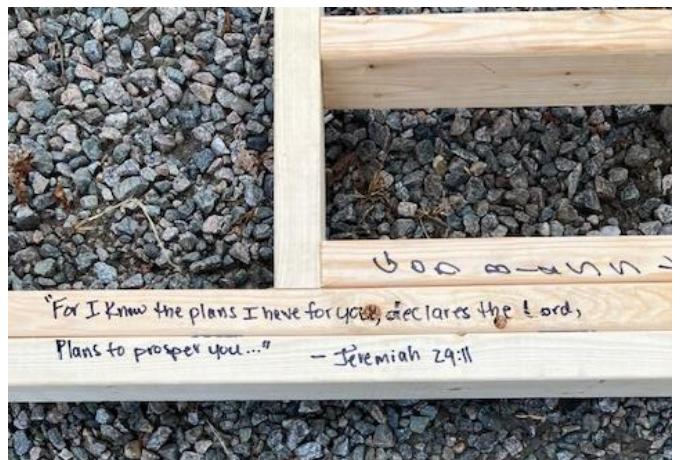 GOD BLESS
"For I Know the plans I have for you, declares the Lord,
Plans to prosper you..." – Jeremiah 29:11